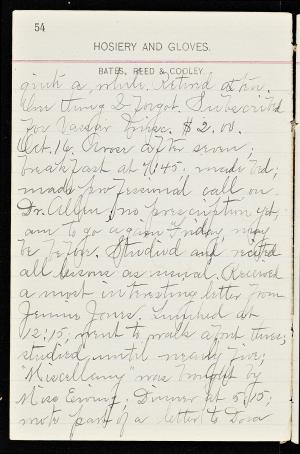 54
HOSIERY AND GLOVES.
BATES, REED & COOLEY.
quite a while. Retired at ten.
One thing I forgot. Subscribed
for Vassar Misc. $2.00.
Oct. 16. Arose after seven;
breakfast at 7:45; made bed;
made professional call on
Dr. Allen; no prescription yet,
am to go again Friday, may
be before. Studied and recited
all lessons as usual. Received
a most interesting letter from
Jennie Jones; lunched at
12:15, went to walk about three,
studied until nearly five;
"Miscellany" was brought by
Miss Ewing; Dinner at 5:15;
wrote part of a letter to Dora